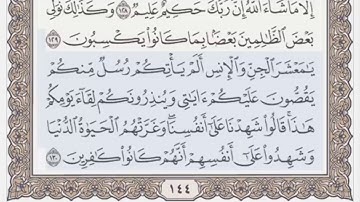 إِلَّا مَا شَاءَ اللَّهُ إِنَّ رَبَّكَ حَكِيمٌ عَلِيمٌ ١٢٨ وَكَذَٰلِكَ نُوَلِّي
بَعْضَ الظَّالِمِينَ بَعْضًا بِمَا كَانُوا يَكْسِبُونَ ١٢٩
يَٰمَعْشَرَ الْجِنِّ وَالْإِنسِ أَلَمْ يَأْتِكُمْ رُسُلٌ مِّنكُمْ
يَقُصُّونَ عَلَيْكُمْ ءَايَٰتِي وَيُنذِرُونَكُمْ لِقَاءَ يَوْمِكُمْ
هَٰذَا قَالُوا شَهِدْنَا عَلَىٰ أَنفُسِنَا وَغَرَّتْهُمُ الْحَيَوٰةُ الدُّنْيَا
وَشَهِدُوا عَلَىٰ أَنفُسِهِمْ أَنَّهُمْ كَانُوا كَٰفِرِينَ ١٣٠
١٤٤